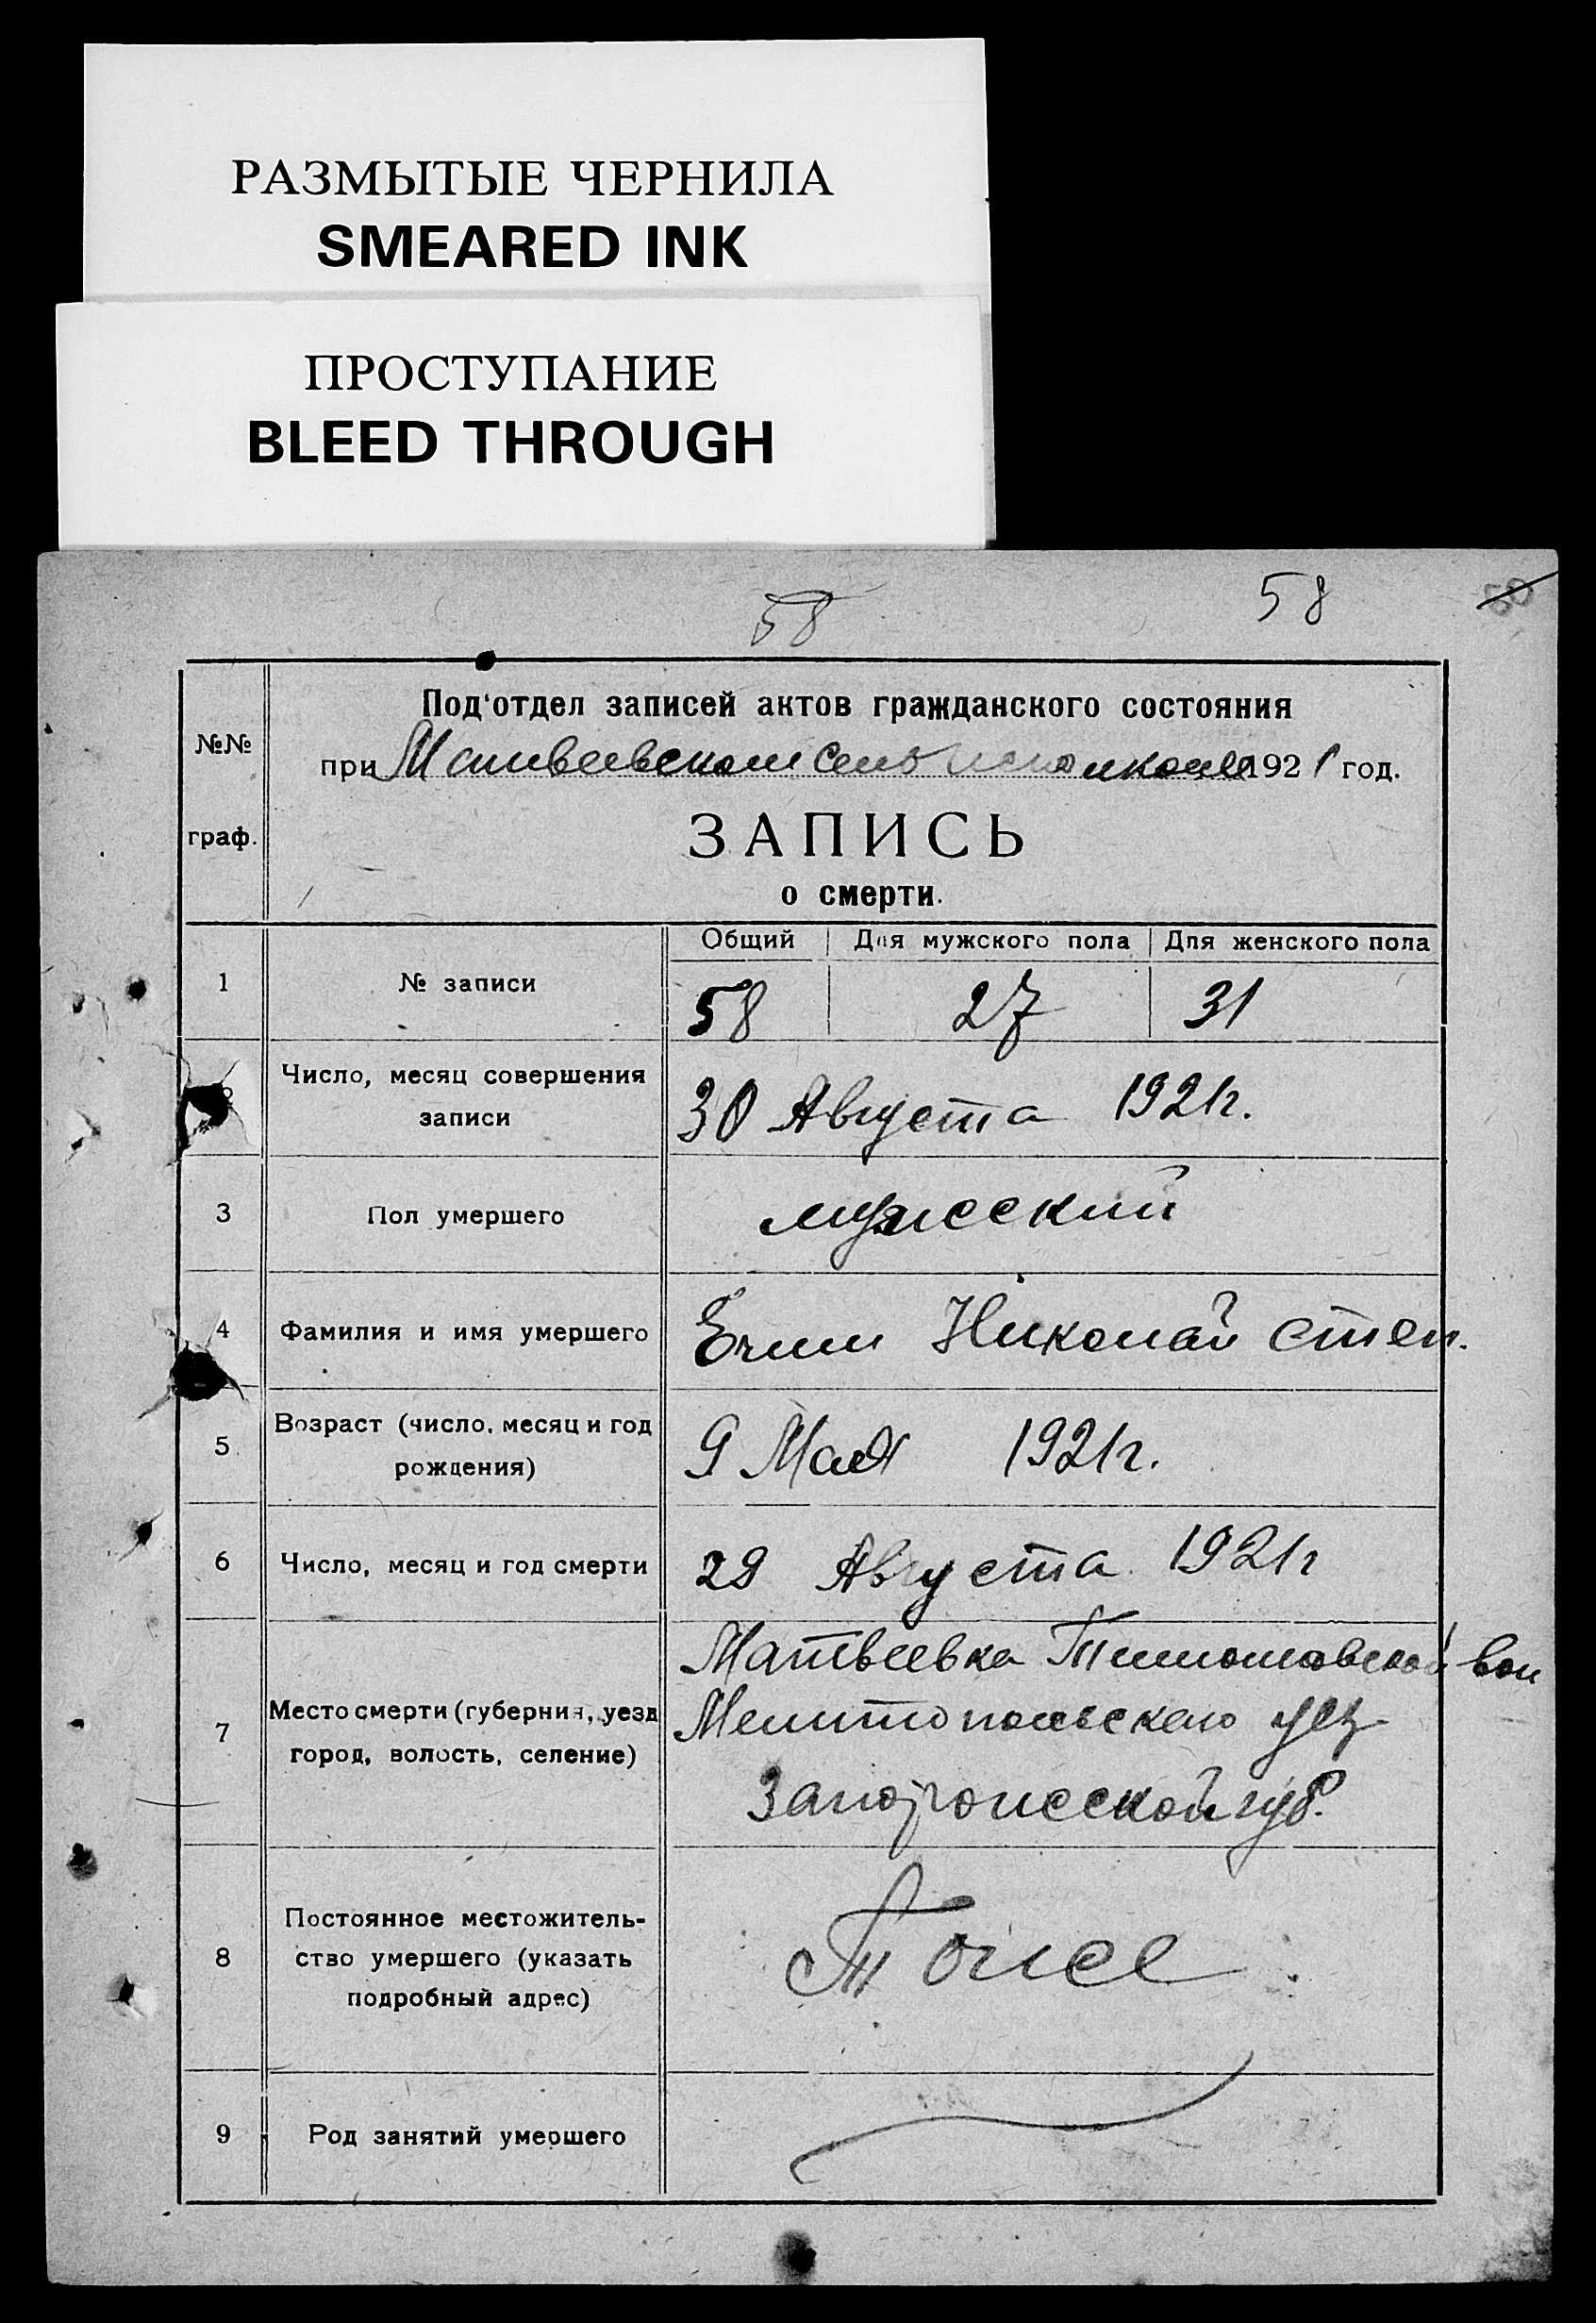 РАЗМЫТЫЕ ЧЕРНИЛА
SMEARED INK
ПРОСТУПАНИЕ
BLEED THROUGH
58
58
60
Под'отдел записей актов гражданского состояния
№№
при Матвеевском сель исполкоме 1921 год.
граф.
ЗАПИСЬ
о смерти.
Общий Для мужского пола Для женского пола
1 № записи 58 27 31
2 Число, месяц совершения
записи
30 Августа 1921г.
3 Пол умершего мужеский
4 Фамилия и имя умершего Ечин Николай Степ.
5 Возраст (число, месяц и год
рождения)
9 Мая 1921г.
6 Число, месяц и год смерти 29 Августа 1921г
7 Место смерти (губерния, уезд
город, волость, селение)
Матвеевка Тимошовской вол
Мелитопольского уез
Запорожеской губ.
8 Постоянное местожитель-
ство умершего (указать
подробный адрес)
Тоже
9 Род занятий умершего